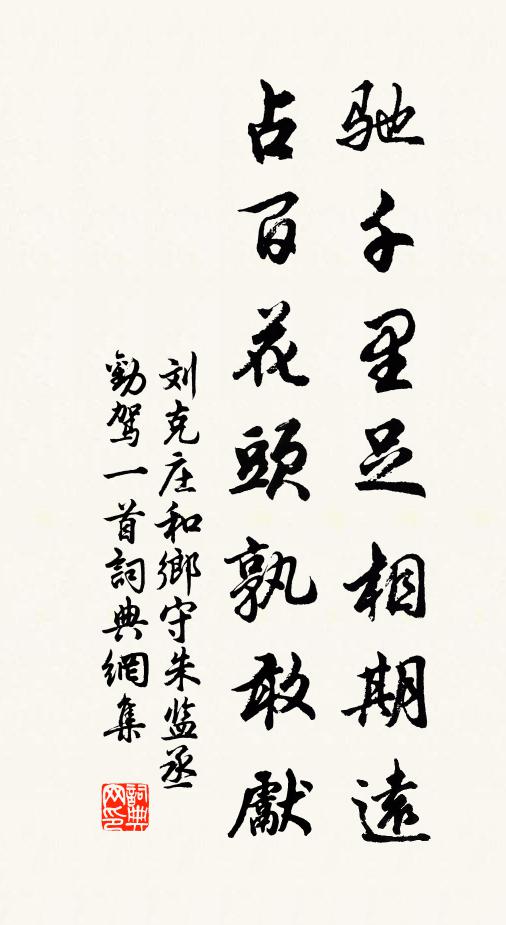 馳千里足相期遠
占百花頭孰敢獻
刘克庄和鄉守朱监丞
勸驾一首詞典網集
詞典网印